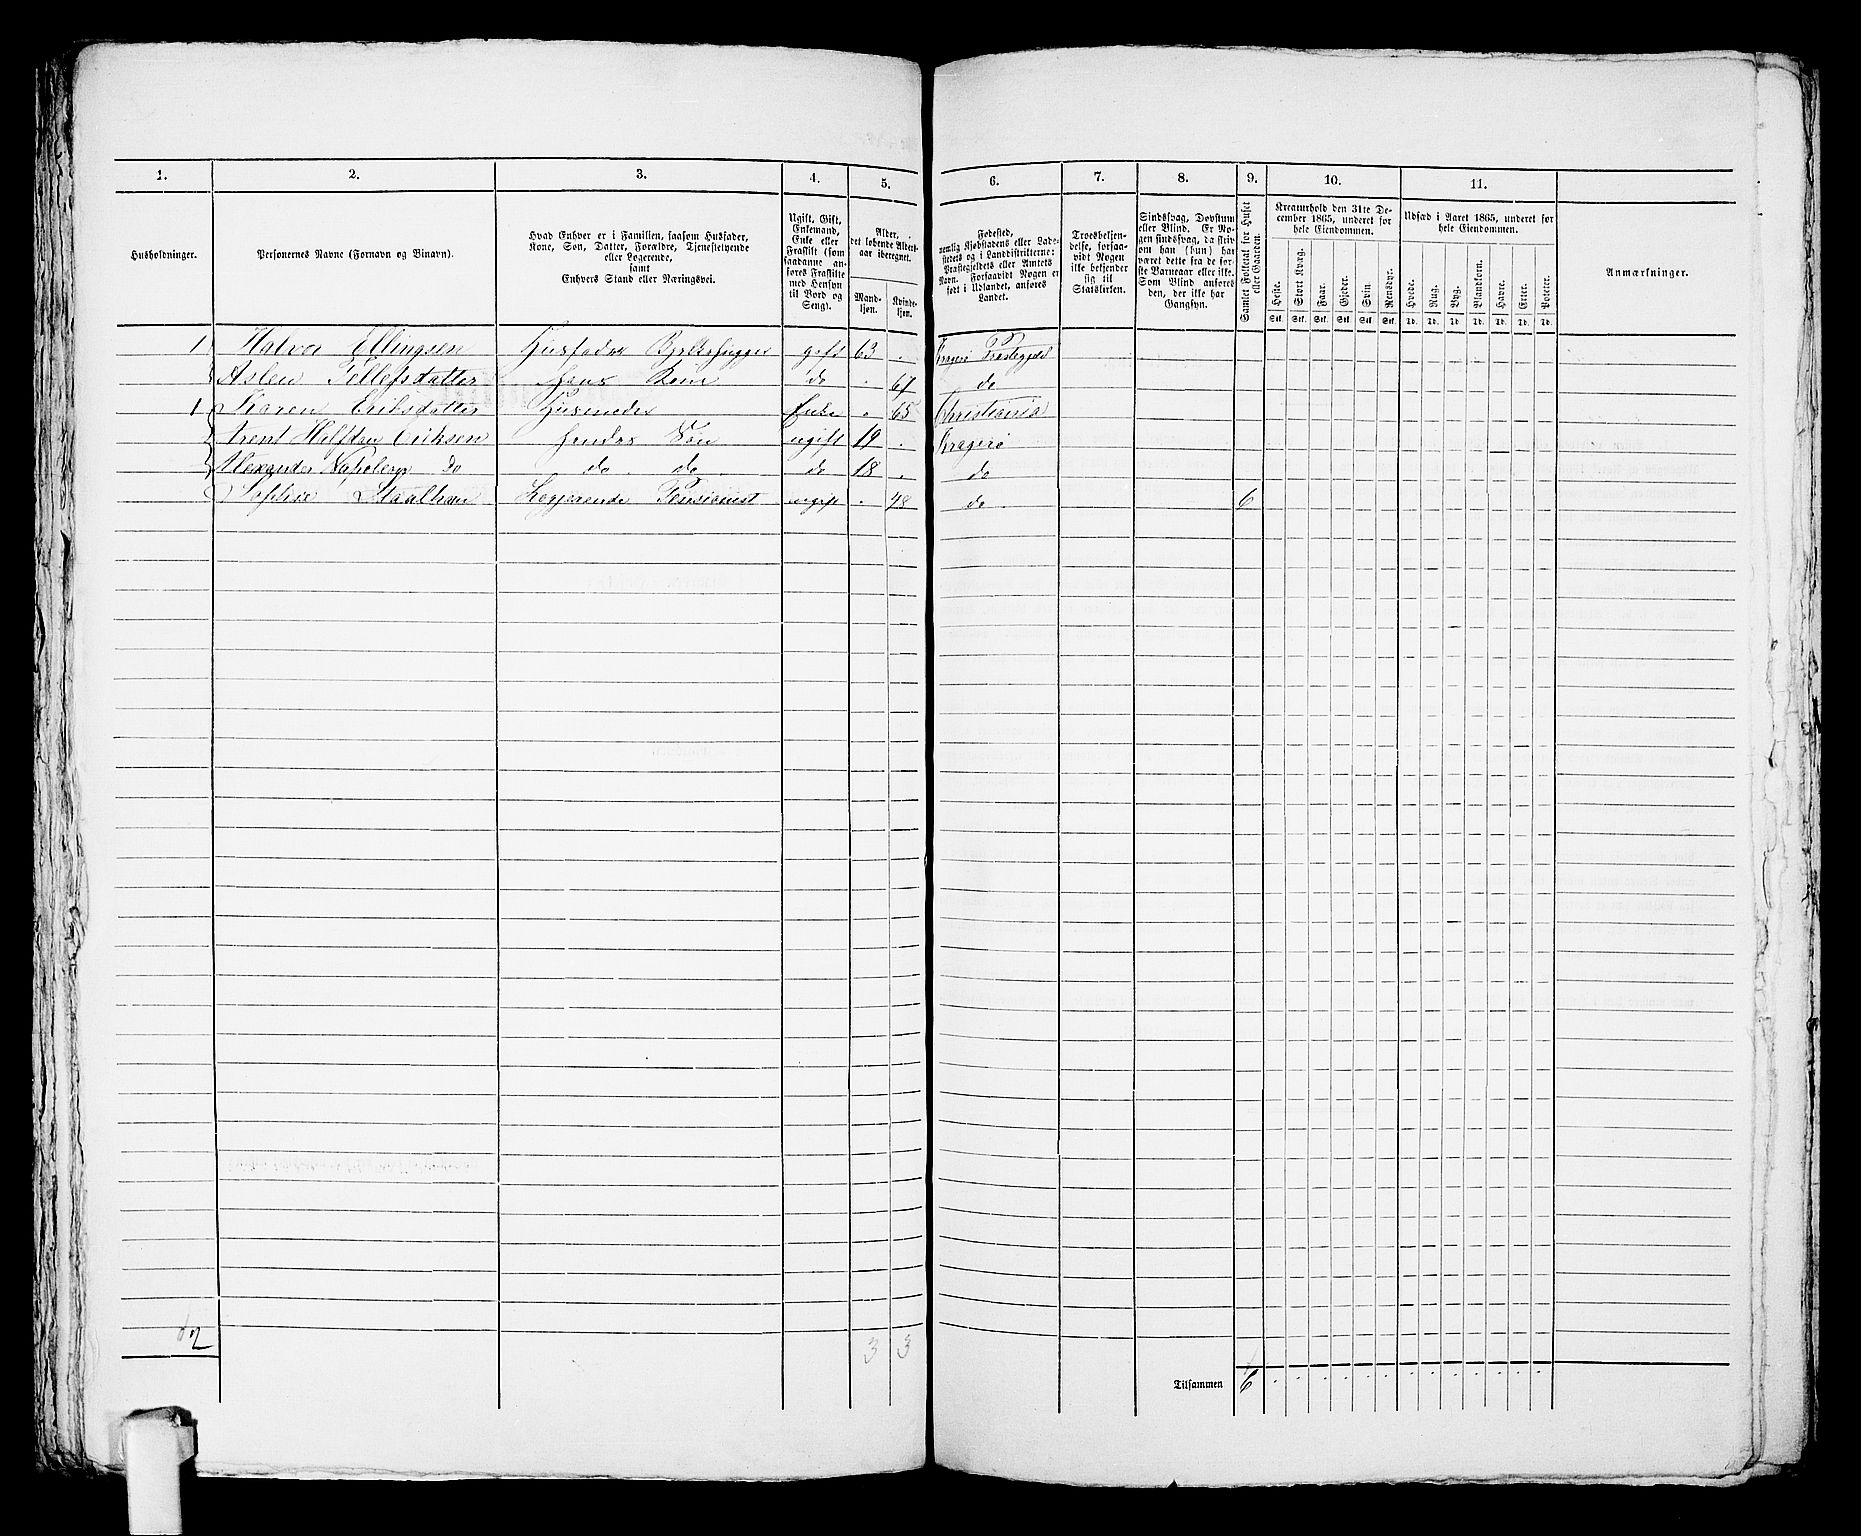 1. 2. 3. 4. 5. 6. 7. 8. 9. 10. 11.
Husholdninger.
Personernes Navne (Fornavn og Binavn).
Hvad Enhver er i Familien, saasom Husfader,
Kone, Søn, Datter, Forældre, Tjenestetyende
eller Logerende,
samt
Enhvers Stand eller Næringsvei.
Ugift, Gift,
Enkemand,
Enke eller
Fraskilt (som
saadanne an-
føres Fraskilte
med Hensyn
til Bord og
Seng).
Alder,
det løbende Alders-
aar iberegnet.
Mand-
kjøn.
Kvinde-
kjøn.
Fødested,
nemlig Kjøbstadens eller Lade-
stedets og i Landdistrikterne:
Præstegjeldets eller Amtets
Navn. Forsaavidt Nogen er
født i Udlandet, anføres
Landet.
Troesbekjen-
delse, forsaa-
vidt Nogen
ikke bekjender
sig til
Statskirken.
Sindssvag, Døvstum
eller Blind. Er No-
gen sindssvag, da skriv
om han (hun) har
været dette fra de før-
ste Barneaar eller ikke.
Som Blind anføres
den, der ikke har
Gangsyn.
Samlet Folketal for Huset
eller Gaarden.
Kreaturhold den 31te De-
cember 1865, underet for
hele Eiendommen.
Heste. Stort Kvæg. Faar. Gjeder. Svin. Rensdyr.
Stk. Stk. Stk. Stk. Stk. Stk.
Udsæd i Aaret 1865, underet for
hele Eiendommen.
Hvede. Rug. Byg. Blandkorn. Havre. Erter. Poteter.
Td. Td. Td. Td. Td. Td. Td.
Anmærkninger.
1 Halvor Ellingsen Husfader gift 63 . Kragerø Præstegjeld
Aslen Tellefsdatter hans Kone do . 61 do
1 Karen Eriksdatter Husmoder Enke . 65 Christiania
Arent Eriksen hendes Søn ugift 19 . Kragerø
Alexander Do do do do 18 . do
Sophie Logerende Pensionist ugift . 48 do 6
2 3 3
Tilsammen 6 . . . . . . . . . . . . .